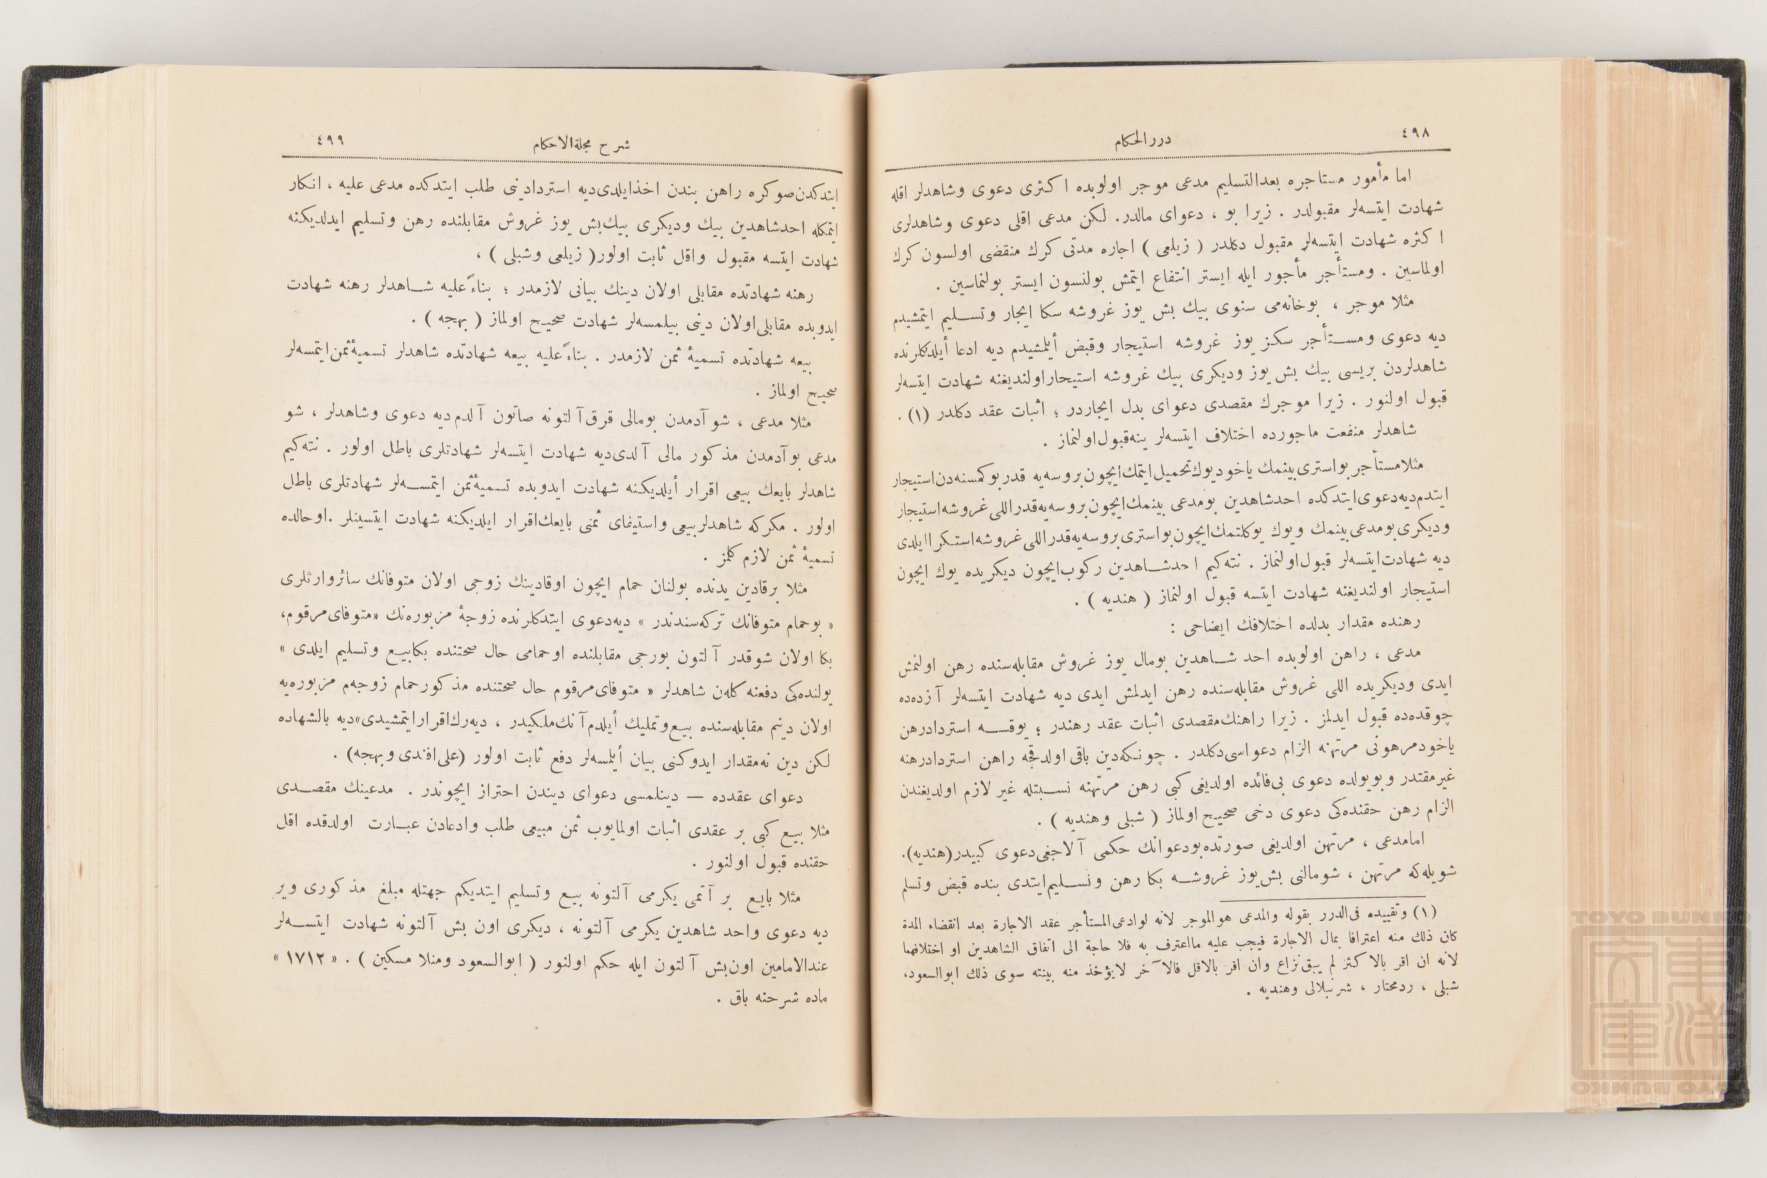 ٤٩٨
دررالحكام
اما مأمور مستاجره بعدالتسليم مدعى موجر اولوبده اكثرى دعوى وشاهدلر اقله
شهادت ايتسه‌لر مقبولدر . زيرا بو ، دعواى مالدر. لكن مدعى اقلى دعوى وشاهدلرى
اكثره شهادت ايتسه‌لر مقبول دكلدر ( زيلعى ) اجاره مدتى كرك منقضى اولسون كرك
اولماسين . ومستأجر مأجور ايله ايستر انتفاع ايتمش بولنسون ايستر بولنماسين .
مثلا موجر ، بوخانه‌مى سنوى بيك بش يوز غروشه سكا ايجار وتسليم ايتمشيدم
ديه دعوى ومستأجر سكز يوز غروشه استيجار وقبض أيلمشيدم ديه ادعا أيلدكلرنده
شاهدلردن بريسى بيك بش يوز وديكرى بيك غروشه استيجاراولنديغنه شهادت ايتسه‌لر
قبول اولنور . زيرا موجرك مقصدى دعواى بدل ايجاردر ؛ اثبات عقد دكلدر (١) .
شاهدلر منفعت ماجورده اختلاف ايتسه‌لر ينه‌قبول‌اولنماز .
مثلامستأجر بواسترى‌بينمك ياخوديوك‌تحميل‌ايتمك‌ايچون‌بروسه‌يه قدربوكمسنه‌دن‌استيجار
ايتدم‌ديه‌دعوى‌ايتدكده احدشاهدين بومدعى بينمك‌ايچون‌بروسه‌يه‌قدراللى‌غروشه‌استيجار
وديكرى‌بومدعى‌بينمك ويوك يوكلتمك‌ايچون‌بواسترى‌بروسه‌يه‌قدراللى‌غروشه‌استكراايلدى
ديه شهادت‌ايتسه‌لر قبول‌اولنماز . نته‌كيم احدشاهدين ركوب‌ايچون ديكريده يوك ايچون
استيجار اولنديغنه شهادت ايتسه قبول اولنماز ( هنديه ) .
رهنده مقدار بدلده اختلافك ايضاحى :
مدعى ، راهن اولوبده احد شاهدين بومال يوز غروش مقابله‌سنده رهن اولنمش
ايدى وديكريده اللى غروش مقابله‌سنده رهن ايدلمش ايدى ديه شهادت ايتسه‌لر آزده‌ده
چوقده‌ده قبول ايدلمز . زيرا راهنك‌مقصدى اثبات عقد رهندر ؛ يوقسه استردادرهن
ياخودمرهونى مرتهنه الزام دعواسى‌دكلدر . چونكه‌دين باقى‌اولدقجه راهن استردادرهنه
غيرمقتدر وبويولده دعوى بى‌فائده اولديغى كبى رهن مرتهنه نسبتله غير لازم اولديغندن
الزام رهن حقنده‌كى دعوى دخى صحيح‌اولماز ( شبلى وهنديه ) .
امامدعى ، مرتهن اولديغى صورتده‌بودعوانك حكمى آلاجغى‌دعوى كبيدر(هنديه).
شويله‌كه مرتهن ، شومالنى بش‌يوز غروشه بكا رهن وتسليم‌ايتدى بنده قبض وتسلم
(١) وتقييده فى‌الدرر بقوله والمدعى هوالموجر لانه لوادعى‌المستأجر عقد الاجارة بعد انقضاء المدة
كان ذلك منه اعترافا بمال الاجارة فيجب عليه مااعترف به فلا حاجة الى اتفاق الشاهدين او اختلافهما
لانه ان اقر بالاكثر لم يبق‌نزاع وان اقر بالاقل فالآخر لايؤخذ منه ببينته سوى ذلك ابوالسعود،
شبلى ، ردمحتار ، شرنبلالى وهنديه .
٤٩٩
شرح مجلةالاحكام
ايتدكدن‌صوكره راهن بندن اخذايلدى‌ديه استردادينى طلب ايتدكده مدعى عليه ، انكار
ايتمكله احدشاهدين بيك وديكرى بيك‌بش يوز غروش مقابلنده رهن وتسليم ايدلديكنه
شهادت ايتسه مقبول واقل ثابت اولور( زيلعى وشبلى ) ،
رهنه شهادتده مقابلى اولان دينك بيانى لازمدر ؛ بناءً‌عليه شاهدلر رهنه شهادت
ايدوبده مقابلى‌اولان دينى بيلمسه‌لر شهادت صحيح اولماز ( بهجه ) .
بيعه شهادتده تسميۀ ثمن لازمدر . بناءً‌عليه بيعه شهادتده شاهدلر تسميۀثمن‌ايتمسه‌لر
صحيح اولماز .
مثلا مدعى ، شو آدمدن بومالى قرق‌آلتونه صاتون آلدم‌ديه دعوى وشاهدلر ، شو
مدعى بوآدمدن مذكور مالى آلدى‌ديه شهادت ايتسه‌لر شهادتلرى باطل اولور . نته‌كيم
شاهدلر بايعك بيعى اقرار أيلديكنه شهادت ايدوبده تسميۀثمن ايتمسه‌لر شهادتلرى باطل
اولور . مكركه شاهدلربيعى واستيفاى ثمنى بايعك‌اقرار ايلديكنه شهادت ايتسينلر .اوحالده
تسميۀ ثمن لازم كلمز .
مثلا برقادين يدنده بولنان حمام ايچون اوقادينك زوجى اولان متوفانك سائروارثلرى
« بوحمام متوفانك تركه‌سندندر » ديه‌دعوى ايتدكلرنده زوجۀ مزبوره‌نك «متوفاى‌مرقوم،
بكا اولان شوقدر آلتون بورجى مقابلنده اوحمامى حال صحتنده بكابيع وتسليم ايلدى »
يولنده‌كى دفعنه كلن شاهدلر « متوفاى‌مرقوم حال صحتنده مذكورحمام زوجه‌م مزبوره‌يه
اولان دينم مقابله‌سنده بيع‌وتمليك أيلدم‌آنك‌ملكيدر ، ديه‌رك‌اقرارايتمشيدى»ديه بالشهاده
لكن دين نه‌مقدار ايدوكنى بيان أيلمسه‌لر دفع ثابت اولور (على‌افندى وبهجه) .
دعواى عقدده — دينلمسى دعواى ديندن احتراز ايچوندر . مدعينك مقصدى
مثلا بيع كبى بر عقدى اثبات اولمايوب ثمن مبيعى طلب وادعادن عبارت اولدقده اقل
حقنده قبول اولنور .
مثلا بايع بر آتمى يكرمى آلتونه بيع وتسليم ايتديكم جهتله مبلغ مذكورى وير
ديه دعوى واحد شاهدين يكرمى آلتونه ، ديكرى اون بش آلتونه شهادت ايتسه‌لر
عندالامامين اون‌بش آلتون ايله حكم اولنور ( ابوالسعود ومنلا مسكين ) . « ١٧١٢ »
ماده شرحنه باق .
TOYO BUNKO
東洋文庫
TOYO BUNKO